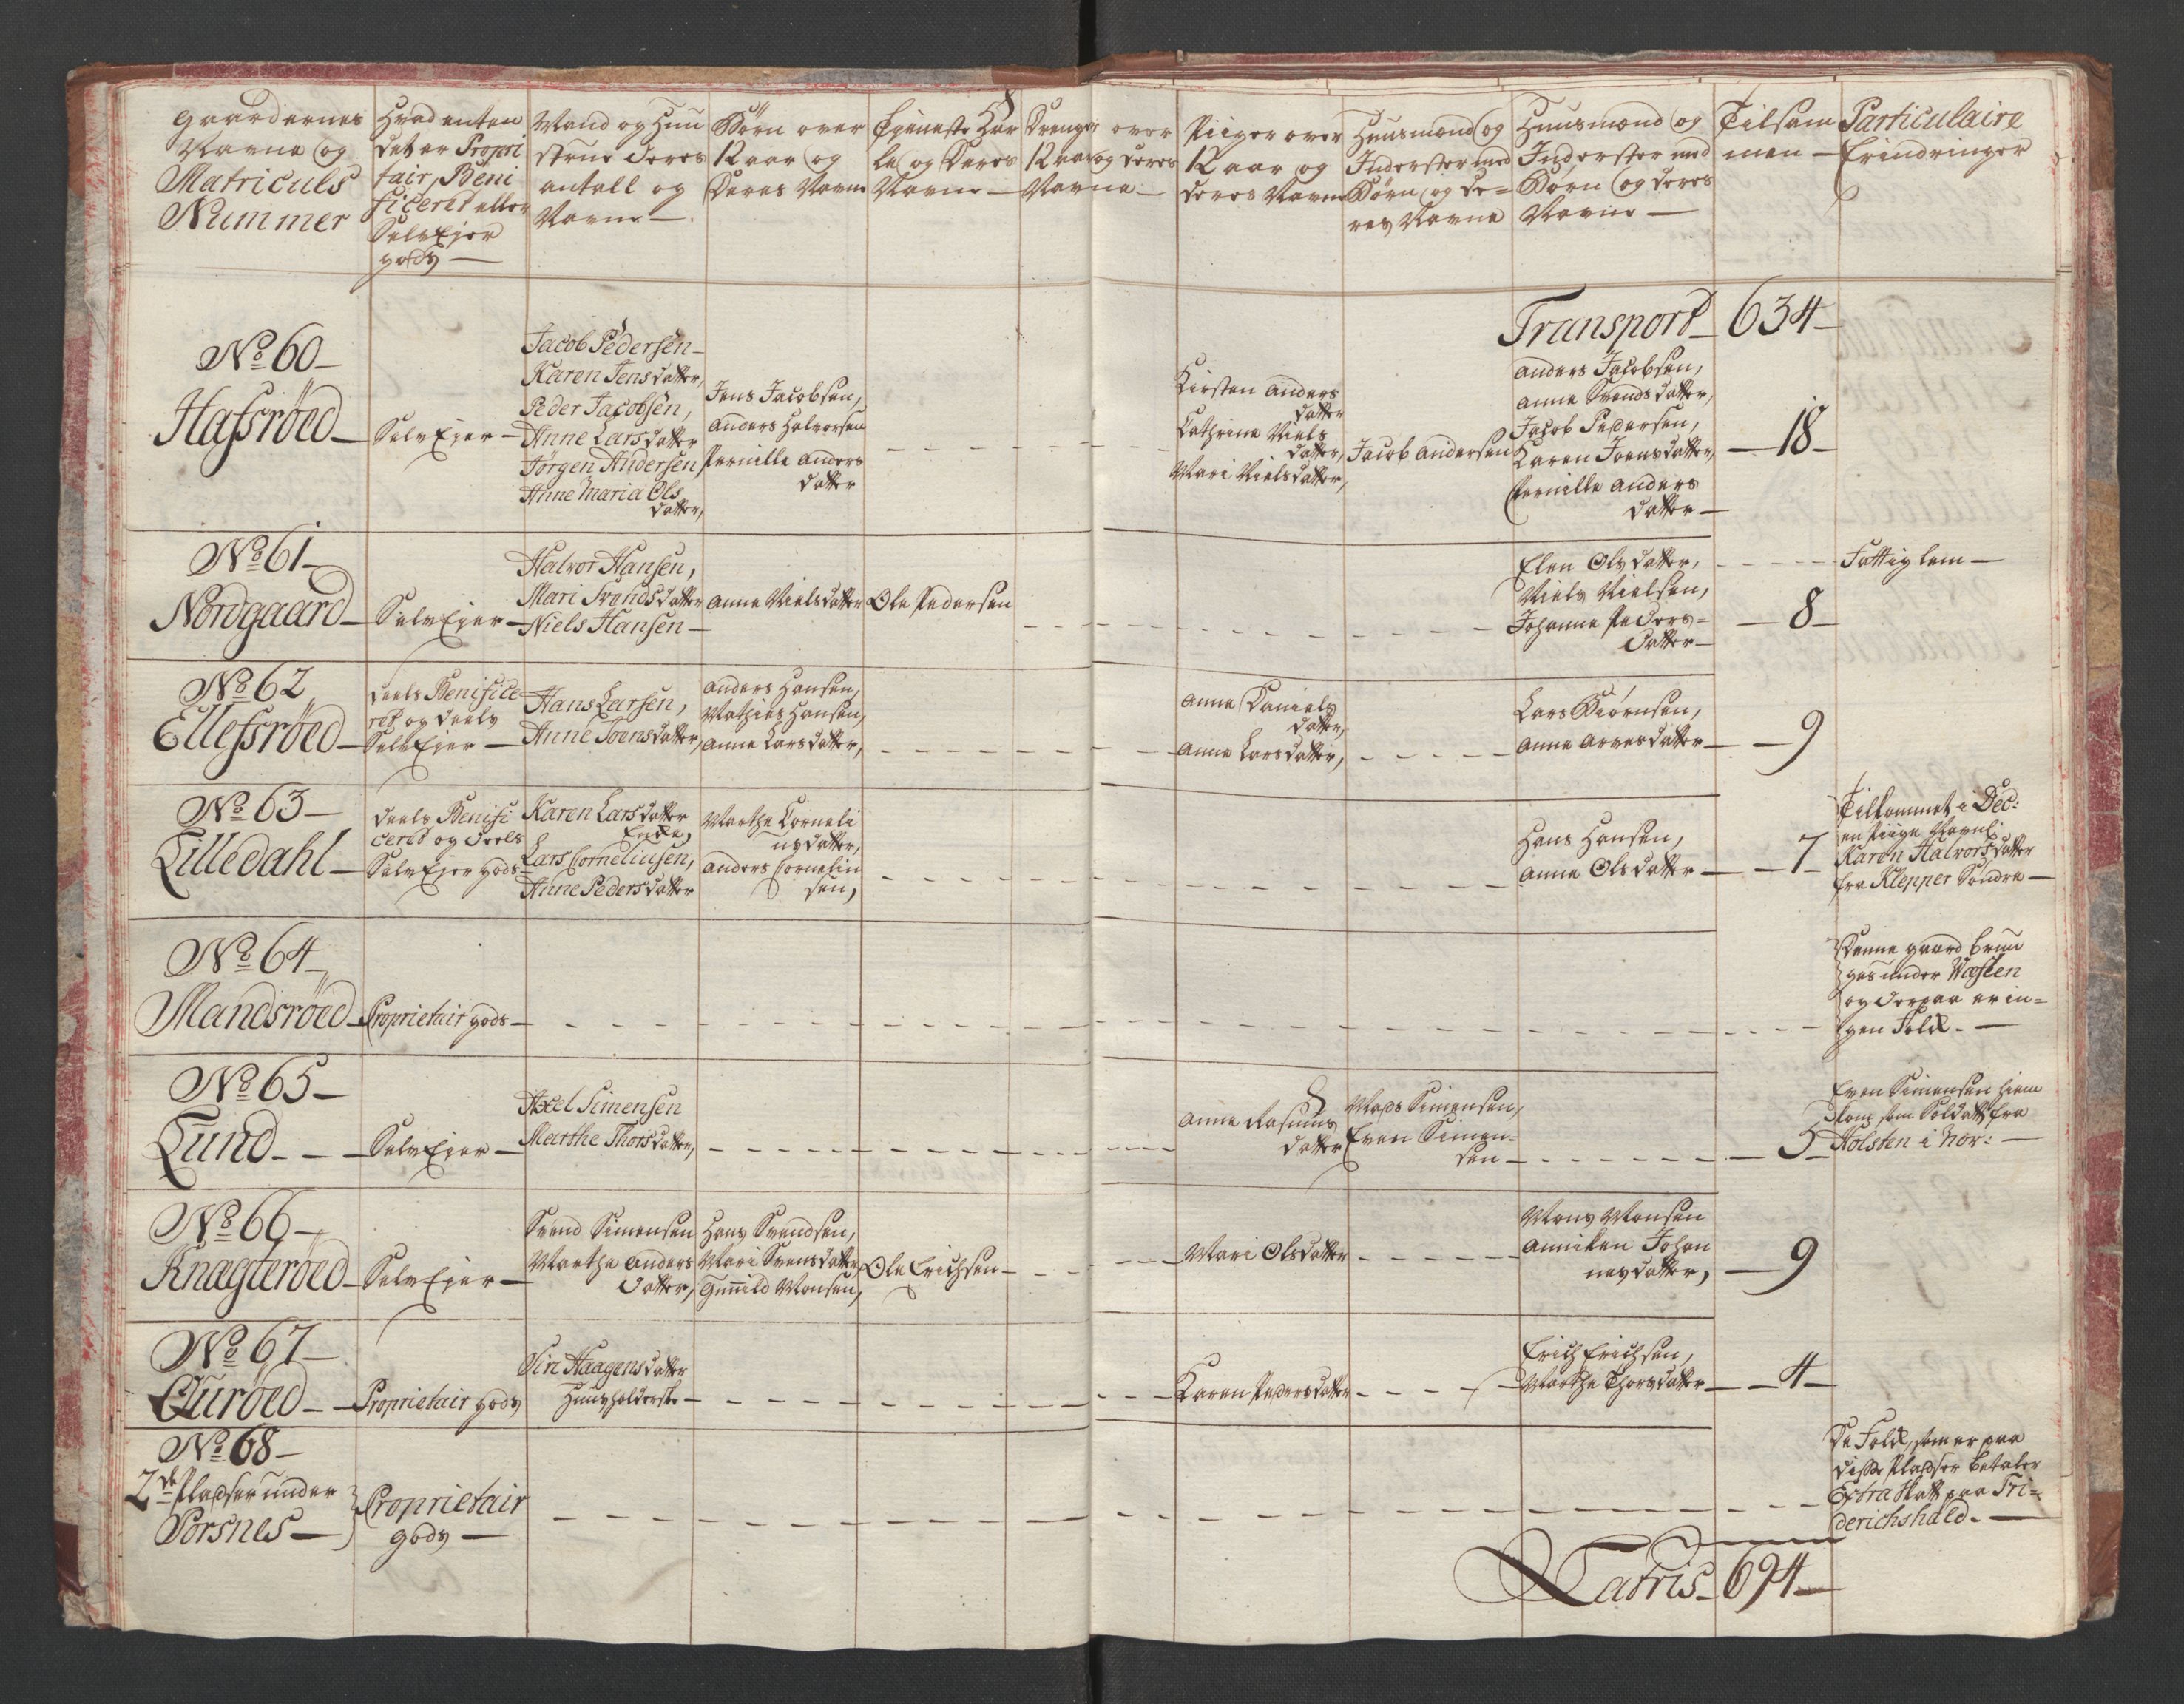 Gaardernes
Navne og
Matriculs
Nummer
Hvad enten
det er Propri
tair, Beni
ficeret eller
SelvEjer
gods —
Mand og Huu
strue deres
antall og
Navne —
Børn over
12 aar og
Deres Navne
Tjeneste Kar
le og Deres
Navne —
Drenge over
12 aar og deres
Navne —
Piiger over
12 aar og
deres Navne
Huusmænd og
Inderster med
Børn og de=
res Navne
Huusmænd og
Inderster med
Børn og deres
Navne —
Tilsam
men —
Particulaire
Erindringer
Transport — 634 —
No 60 —
Hafsröed —
SelvEjer —
Jacob Pedersen —
Karen Jensdatter,
Peder Jacobsen,
Anne Larsdatter
Jörgen Andersen,
Anne Maria Ols
datter,
Jens Jacobsen,
Anders Halvorsen
Pernille Anders
datter
Kirsten Anders
datter
Cathrine Niels
datter,
Mari Nielsdatter,
Jacob Andersen
Anders Jacobsen,
Anne Svendsdatter,
Jacob Pedersen,
Karen Joensdatter,
Pernille Anders
datter —
— 18 —
No 61 —
Nordgaard —
SelvEjer —
Halvor Hansen,
Mari Svendsdatter
Niels Hansen —
Anne Nielsdatter
Ole Pedersen
Elen Olsdatter,
Niels Nielsen,
Johanne Peders=
datter —
— 8 —
Fattig lem —
No 62
Ellefsröed —
deels Benifice
ret og deels
SelvEjer —
Hans Larsen,
Anne Joensdatter,
Anders Hansen,
Mathias Hansen,
Anne Larsdatter,
Anne Daniels
datter,
Anne Larsdatter,
Lars Biørnsen,
Anne Arnesdatter —
— 9
No 63 —
Lilledahl —
deels Benifi
ceret og deels
SelvEjer gods —
Karen Larsdatter
Enke,
Lars Corneliusen,
Anne Pedersdatter
Marthe Corneli
usdatter,
Anders Corneliu
sen,
Hans Hansen,
Anne Olsdatter —
— 7 —
Tilkommet i Dec:
en Piige Navnl:
Karen Halvorsdatter
fra Klepper Søndre —
No 64
Mandsröed —
Proprietair gods —
Denne gaard brun
ges under Wæsten
og derpaa er in=
gen Folk. —
No 65 —
Lund —
SelvEjer —
Axel Simensen
Marthe Thorsdatter,
Anne Rasmus
datter
Mads Simensen,
Even Simen=
sen —
— 5 —
Even Simensen hiem
kom som Soldatt fra
Holsten i Nov: —
No 66 —
Knagteröed —
SelvEjer —
Svend Simensen
Marthe Anders
datter,
Hans Svendsen,
Mari Svensdatter,
Gunild Monsen,
Ole Erichsen —
Mari Olsdatter
Mons Monsen
Anniken Johan
nesdatter,
— 9
No 67 —
Qvröed —
Proprietair gods
Siri Haagensdatter
Huusholderske —
Karen Pedersdatter
Erich Erichsen,
Marthe Thorsdatter —
— 4 —
No 68 —
2de Pladser under
Porsnes —
Proprietair
gods —
De Folk, som er paa
disse Pladser betaler
Extra Skatt paa Fri=
derichshald. —
Latris — 694 —